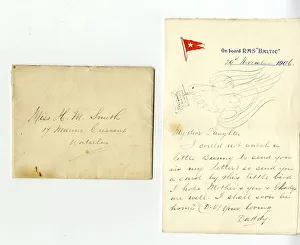 Miss H. M. Smith
17 Marine Crescent
Waterloo
On board R.M.S "BALTIC"
November 1906
My dear Daughter
I could not catch a
little Bunny to send you
in my letter so send you
a card by this little bird
I hope Mother & you & Gladys
are well. I shall soon be
home (D.V) your loving
Daddy.